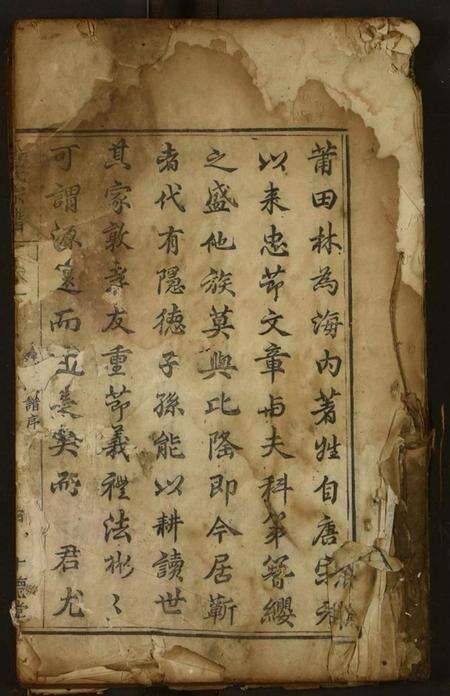 莆田林為海内著姓自唐宋
以来忠節文章与夫科第簪纓
之盛他族莫與比隆即今居蘄
者代有隱德子孫能以耕讀世
其家敦孝友重節義禮法彬〻
可謂源遠而流長矣而 君尤
宗譜
譜序